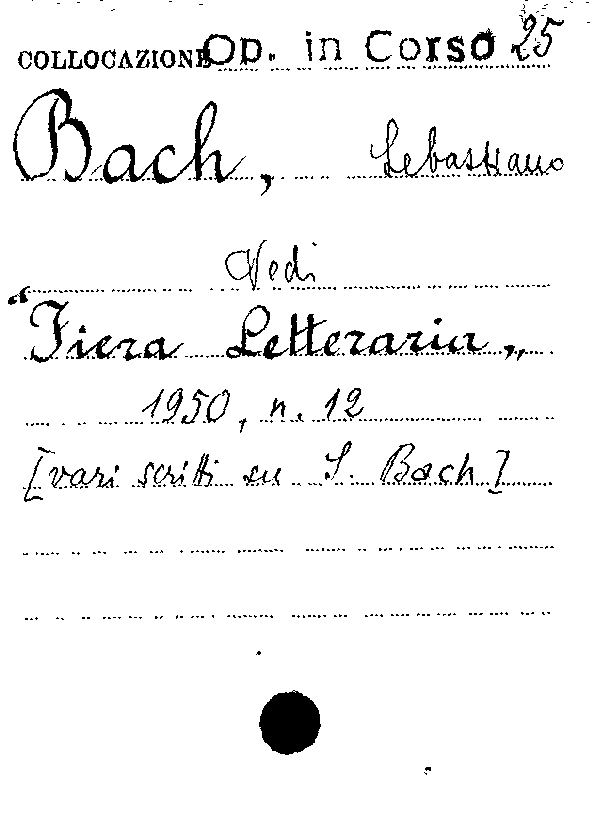 COLLOCAZIONE Op. in Corso 25
Bach, Sebastiano
Vedi
"Fiera Letteraria„
1950, n. 12
[vari scritti su S. Bach]